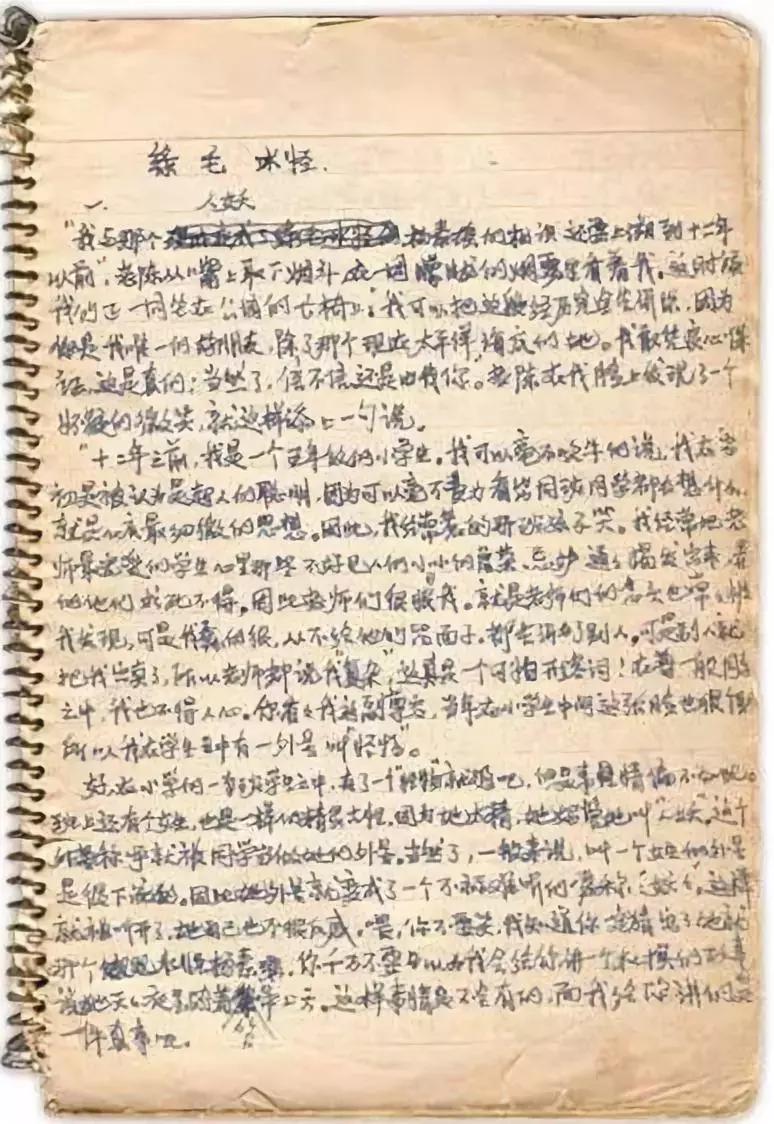 绿毛水怪.
一、 人妖
"我与那个杨素瑶的相识还要上溯到十二年
以前",老陈从嘴上取下烟斗,在一团朦胧的烟雾里看着我。这时候
我们正一同坐在公园的长椅上:"我可以把这段经历完全告诉你,因为
你是我唯一的好朋友,除了那个现在太平洋海底的她。我敢凭良心保
证,这是真的;当然了,信不信还是由你"。老陈在我脸上发现了一个
怀疑的微笑,就这样添上一句说。
"十二年之前,我是一个五年级的小学生。我可以毫不吹牛的说,我在当
初是被认为是超人的聪明,因为可以毫不费力看出同班同学都在想什么,
就是心底最细微的思想。因此,我经常惹的那班孩子笑。我经常把老
师最宠爱的学生心里那些不好见人的小小的虚荣、忌妒通通揭发出来,弄
的他们求死不得。因此老师们很恨我。就是老师们的念头也常常被
我发现,可是我蠢的很,从不给他们留面子,都告诉了别人。可是别人就
把我出卖了,所以老师都说我"复杂",这真是一个可怕形容词!在着一般同学
之中,我也不得人心。你看看我这副尊容,当年在小学生中间这张脸也很
所以我在学生中有一外号叫"怪物"。
好,在小学的一班学生之中,有了一个"怪物"就够吧,但是事情偏不如此。
班上还有个女生,也是一样的精灵古怪。因为她太精,她妈管她叫"人妖"。这个
称呼就被同学当做她的外号。当然了,一般来说,叫一个女生的外号
是很下流的。因此她外号就变成了一个不算难听的昵称"妖妖"。这样
就被叫开了,她自己也不很反感。喂,你不要笑,我知道你一定猜出了她就
那个水怪杨素瑶。你千万不要以为我会给你讲一个杜撰的故事,
说她天天夜里骑着笤帚上天。这样事情是不会有的,而我给你讲的是
一件真事吧。